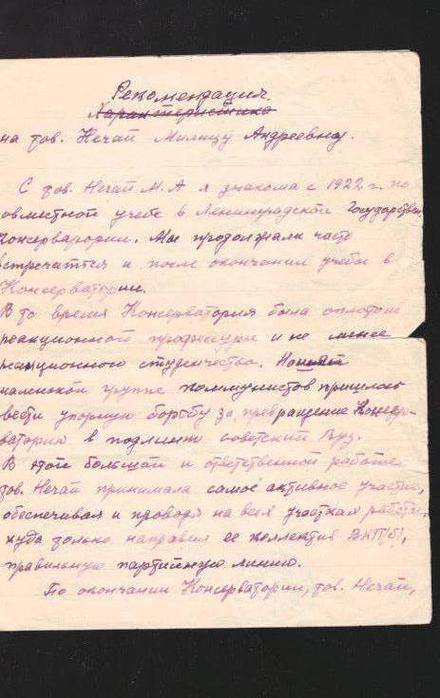 Рекомендация.
Характеристика
на тов. Нечай Милицу Андреевну.
С тов. Нечай М. А я знакома с 1922 г. по
овместной учебе в Ленинградской Государствен
Консерватории. Мы продолжали часто
встречатся и после окончания учебы в
Консерватории.
В то время Консерватория была оплотом
реакционной профессуры и не менее
реакционного студенчества.
маленькой группе коммунистов пришлось
вести упорную борьбу за превращение Консер-
ваторию в подлинно советский Вуз.
В этой большой и ответственной работе
тов. Нечай принимала самое активное участие,
обеспечивая и проводя на всех участках работы,
куда только направлял ее коллектив ВКП(б),
правильную партийную линию.
По окончании Консерватории, тов. Нечай,